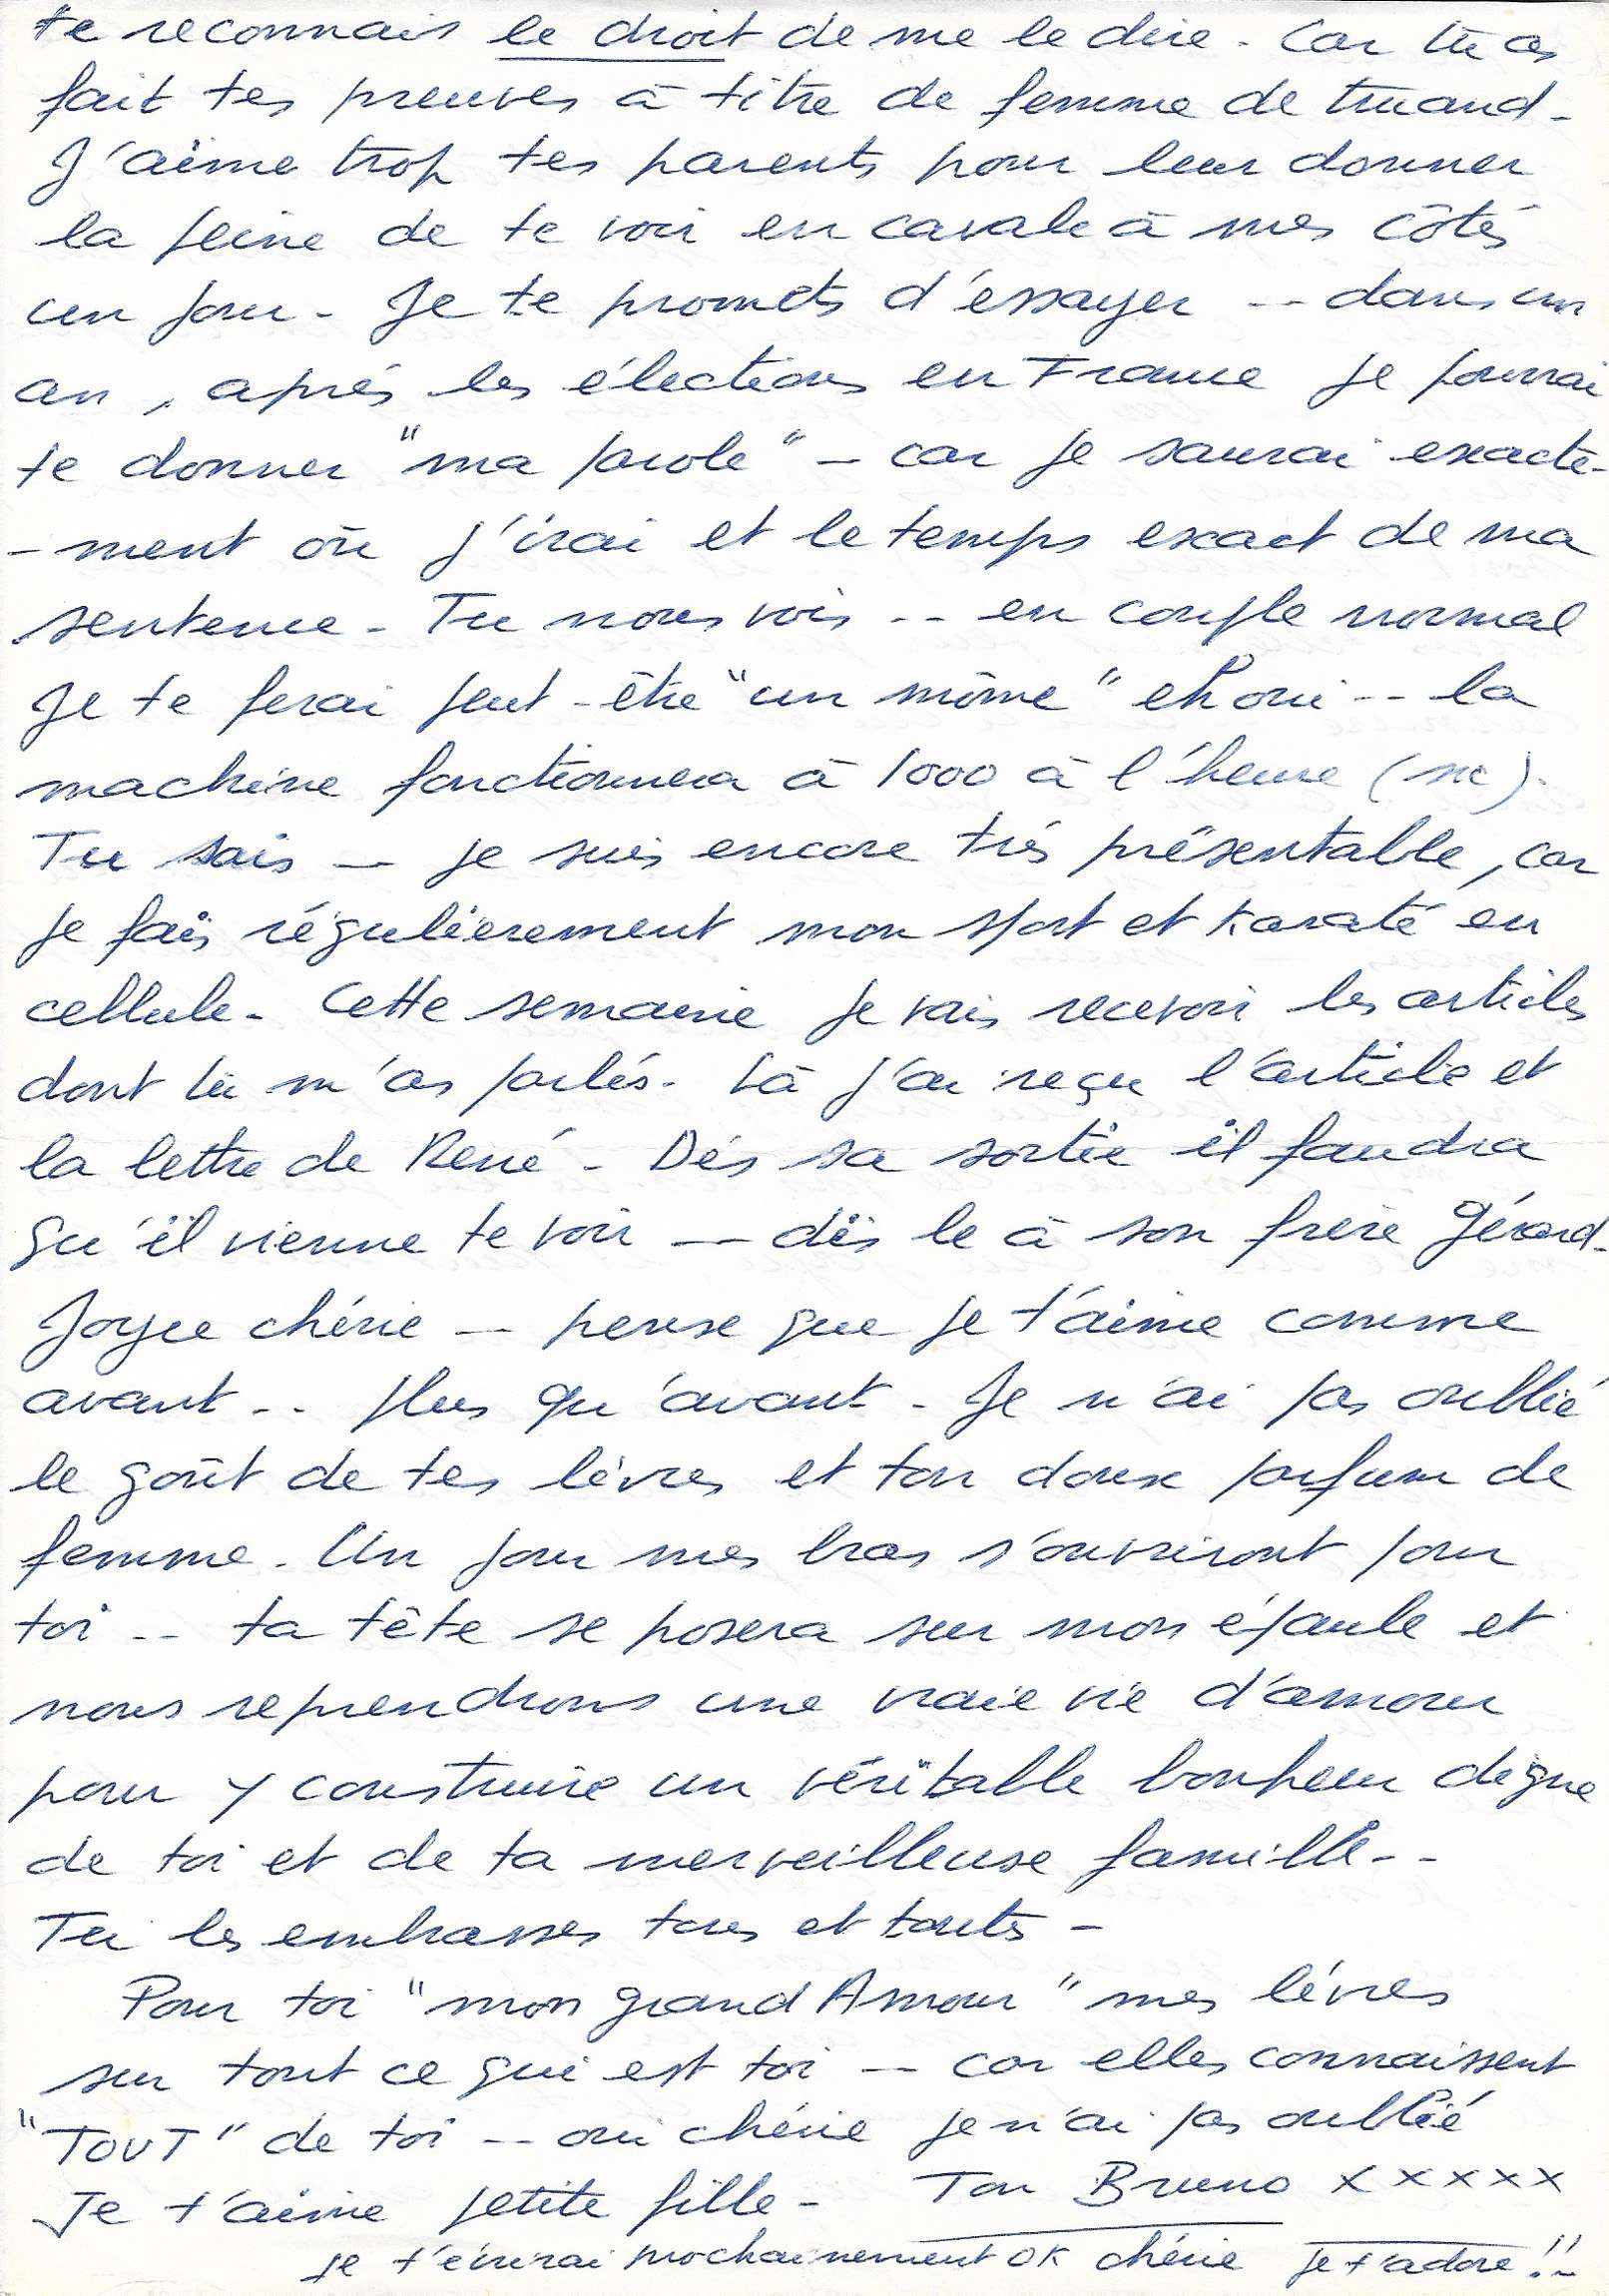 te reconnais le droit de me le dire - Car tu as
fait tes preuves à titre de femme de truand -
J'aime trop tes parents pour leur donner
la peine de te voir en cavale à mes côtés
un jour - Je te promets d'essayer -- dans un
an, après les élections en France je pourrai
te donner "ma parole" - car je saurai exacte-
-ment où j'irai et le temps exact de ma
sentence - Tu nous vois -- en couple normal
Je te ferai peut-être "un môme" eh oui -- la
machine fonctionnera à 1000 à l'heure (sic).
Tu sais — je suis encore très présentable, car
je fais régulièrement mon sport et karaté en
cellule - Cette semaine je vais recevoir les articles
dont tu m'as parlés - Là j'ai reçu l'article et
la lettre de René - Dès sa sortie il faudra
qu'il vienne te voir — dis le à son frère Gérard -
Joyce chérie — pense que je t'aime comme
avant -- plus qu'avant - Je n'ai pas oublié
le goût de tes lèvres et ton doux parfum de
femme - Un jour mes bras s'ouvriront pour
toi -- ta tête se posera sur mon épaule et
nous reprendrons une vraie vie d'amour
pour y construire un véritable bonheur digne
de toi et de ta merveilleuse famille --
Tu les embrasses tous et toutes -
Pour toi "mon grand Amour" mes lèvres
sur tout ce qui est toi — car elles connaissent
"TOUT" de toi -- oui chérie je n'ai pas oublié
Je t'aime petite fille - Ton Bruno x x x x x
je t'écrirai prochainement OK chérie je t'adore !!